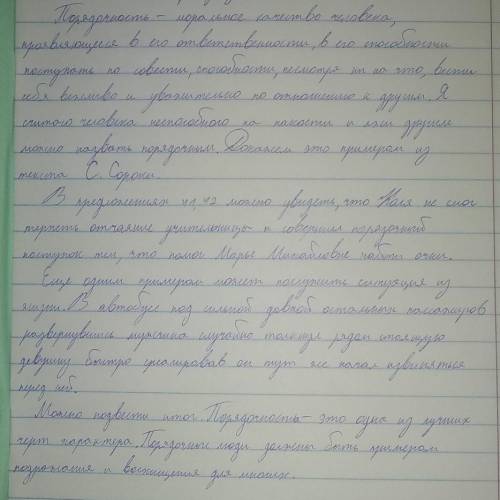 Порядочность – моральное качество человека,
проявляющееся в его ответственности, в его способности
поступать по совести, способности, несмотря ни на что, вести
себя вежливо и уважительно по отношению к другим. Я
считаю человека неспособного на пакости и лжи другим
можно назвать порядочным. Докажем это примером из
текста С. Сороки.
В предложениях 41,42 можно увидеть, что Коля не смог
терпеть отчаяние учительницы и совершил порядочный
поступок тем, что помог Марье Михайловне найти очки.
Еще одним примером может послужить ситуация из
жизни. В автобусе под сильной давкой остальных пассажиров
развернувшись мужчина случайно толкнул рядом стоящую
девушку быстро среагировав он тут же начал извиняться
перед ней.
Можно подвести итог. Порядочность – это одна из лучших
черт характера. Порядочные люди должны быть примером
подражания и восхищения для многих.